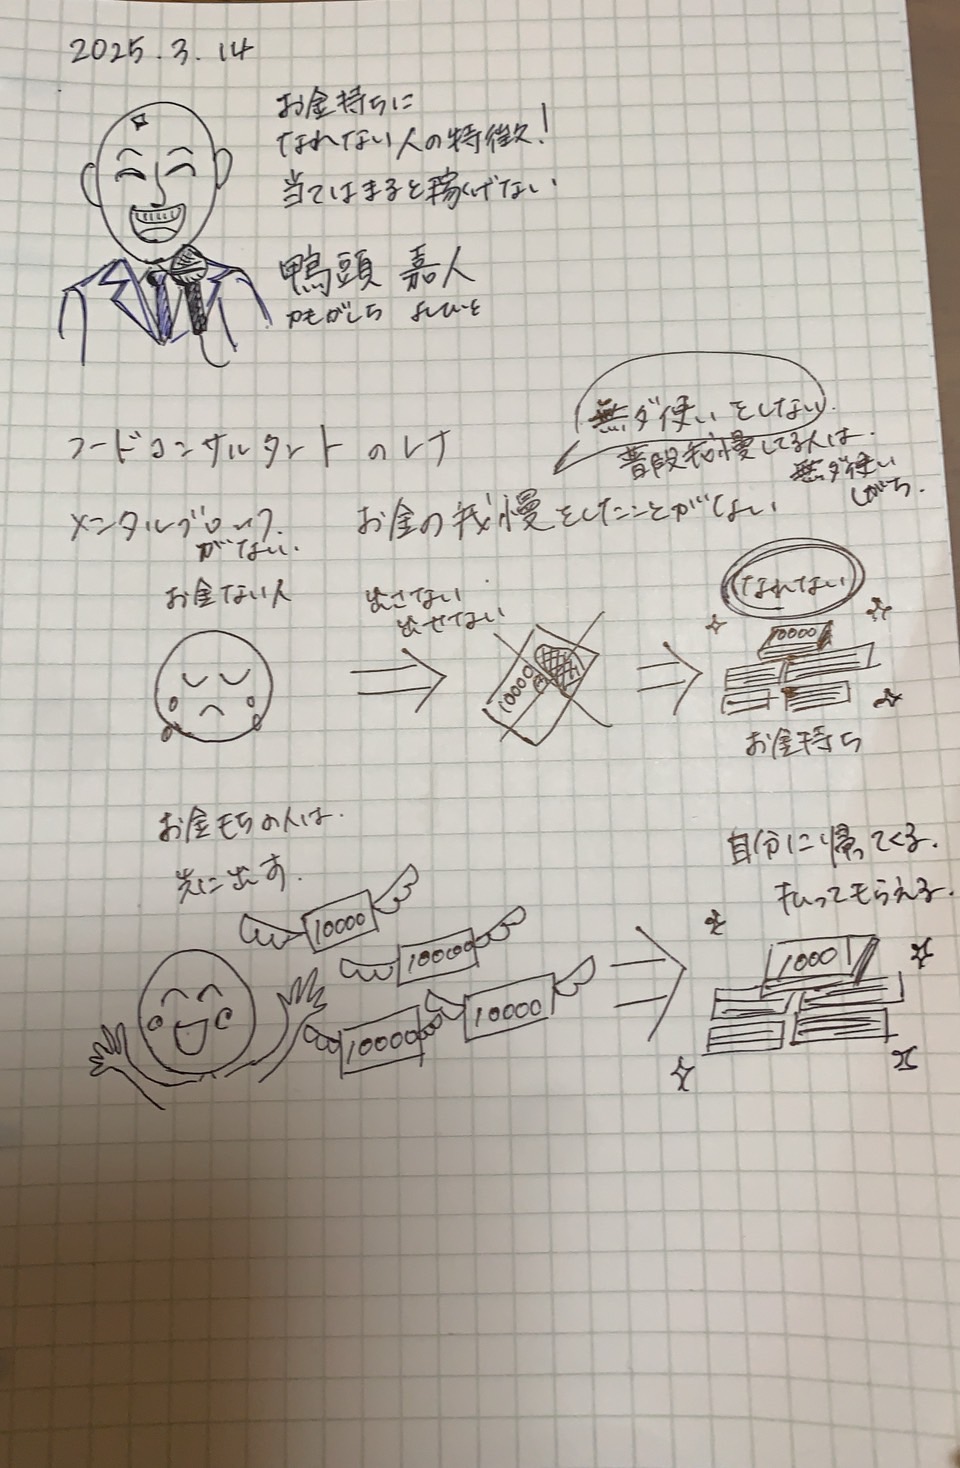 2025.3.14
お金持ちに
なれない人の特徴!
当てはまると稼げない
鴨頭 嘉人
かもがしら よしひと
無ダ使いをしない
普段我慢してる人は
無ダ使い
しがち.
フードコンサルタント のレナ
メンタルブロック
がない.
お金の我慢をしたことがない
お金ない人
出さない
出せない
10000
なれない
10000
お金持ち
お金もちの人は.
先に出す.
10000
10000
10000
10000
自分に帰ってくる.
払ってもらえる.
1000